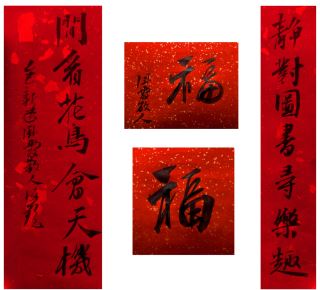 靜對圖書尋樂趣
閒看花鳥會天機
福
福